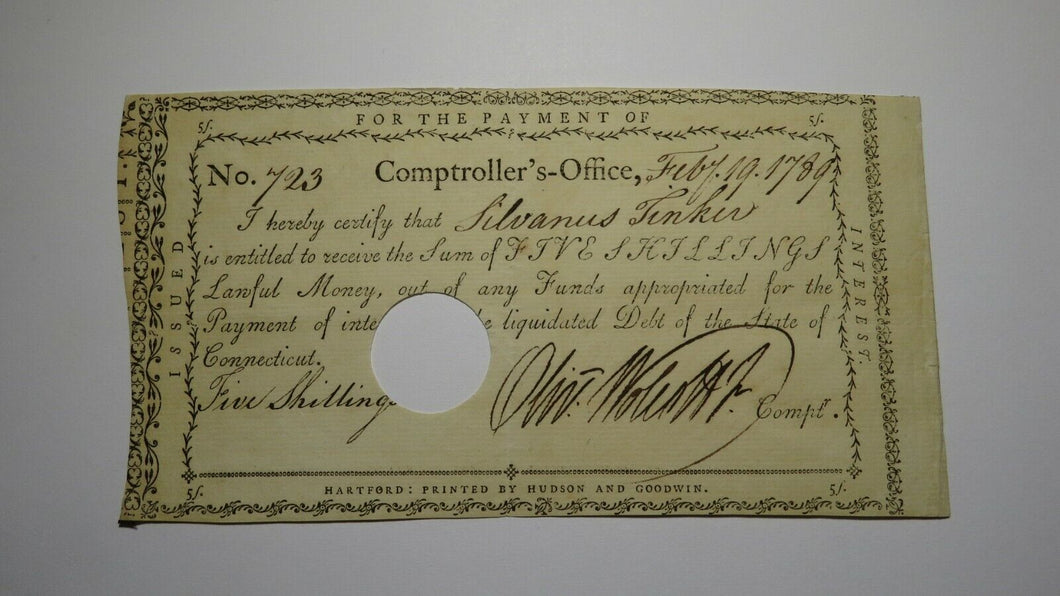 FOR THE PAYMENT OF
5/.
5/.
No. 723 Comptroller's-Office, Feby. 19. 1789
I hereby certify that Silvanus Tinker
is entitled to receive the Sum of FIVE SHILLINGS
Lawful Money, out of any Funds appropriated for the
Payment of inte e liquidated Debt of the State of
Connecticut.
Five Shillings
Olivr. Wolcott Jr Comptr.
ISSUED
INTEREST.
5/.
HARTFORD: PRINTED BY HUDSON AND GOODWIN.
5/.